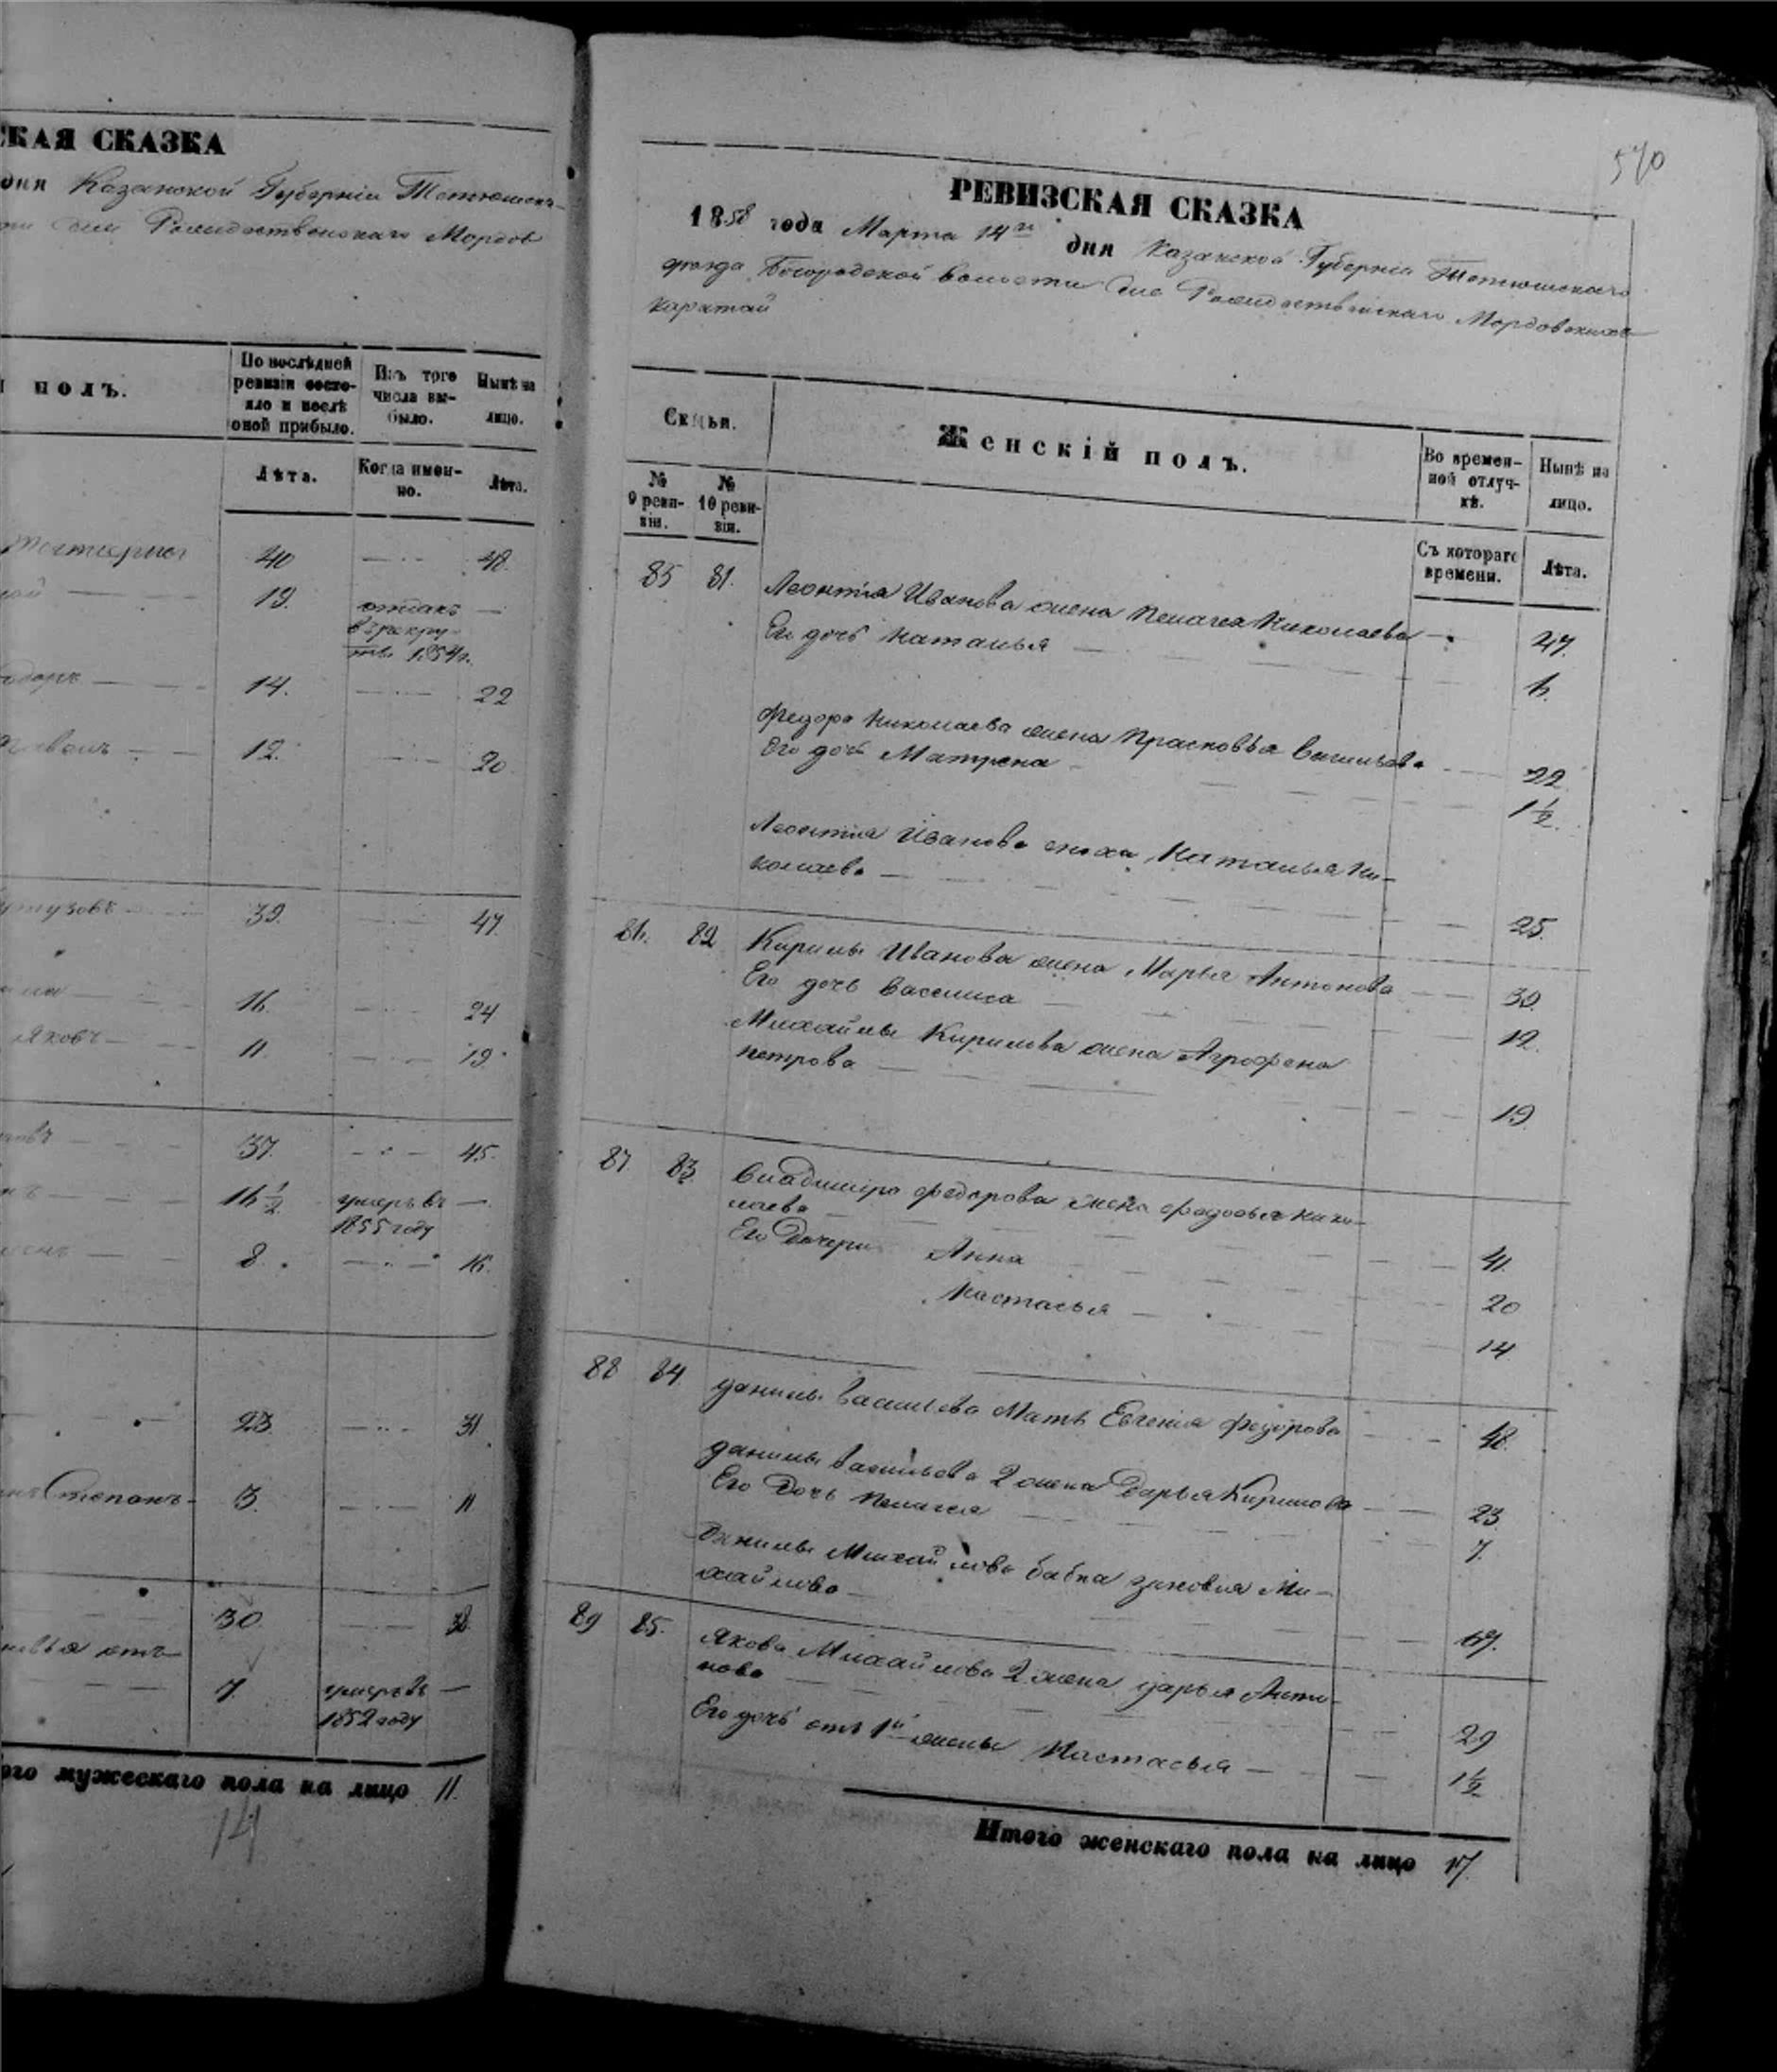 КАЯ СКАЗКА
дня Казанской Губерніи Тетюшска-
Рождественскаго Мордов
полъ.
По послѣдней
ревизіи состо-
яло и послѣ
оной прибыло.
Изъ того
числа вы-
было.
Нынѣ на
лицо.
Лѣта.
Когда имен-
но.
Лѣта.
40 48.
19. отданъ
в рекру-
ты 1854 г.
14. 22
12. 20
39. 47.
16. 24
Яковъ 11 19
37. 45.
16 ½ умеръ въ
1855 году
8. 16.
23 31
Степанъ 3. 11
30. 38.
7. умеръ въ
1852 году
ого мужескаго пола на лицо 11.
14
570
РЕВИЗСКАЯ СКАЗКА
1858 года Марта 14го дня Казанской Губерніи Тетюшскаго
уѣзда Богородской волости Села Рождественскаго Мордовскихъ
Каратай
Семьи.
Женскій полъ.
Во времен-
ной отлуч-
кѣ.
Нынѣ на
лицо.
№
9 реви-
зіи.
№
10 реви-
зіи.
Съ котораго
времени.
Лѣта.
85 81. Леонтія Иванова жена Пелагея Николаева 47.
Его дочь Наталья 6.
Федора Николаева жена Прасковья Васильева 22
Его дочь Матрена 1½.
Леонтія Иванова сноха Наталья Ни-
колаева 25.
86. 82 Кирилы Иванова жена Марья Антонова 39.
Его дочь Василиса 12.
Михайлы Кирилова жена Агрофена
Петрова 19
87. 83 Владимира Федорова жена Федосья Нико-
лаева 41.
Его дочери Анна 20
Настасья 14.
88 84. Данилы Васильева Мать Евгенія Федорова 48.
Данилы Васильева 2 жена Дарья Кирилова 23
Его дочь Пелагея 7.
Данилы Михайлова бабка Зиновия Ми-
хайлова 67.
89 85. Якова Михайлова 2 жена Дарья Анти-
пова 29
Его дочь отъ 1й жены Настасья 1½
Итого женскаго пола на лицо 17.